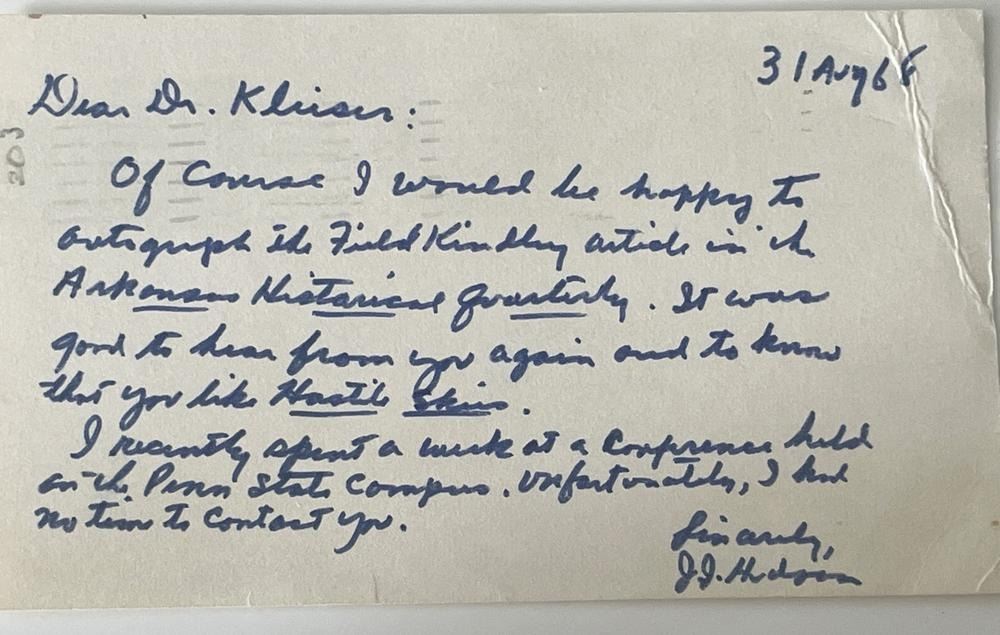 31 Aug 68
Dear Dr. Kleiser:
Of Course I would be happy to
autograph the Field Kindley article in the
Arkansas Historical Quarterly. It was
good to hear from you again and to know
that you like Hostile Skies.
I recently spent a week at a Conference held
on the Penn State Campus. Unfortunately, I had
no time to contact you.
Sincerely,
J.J. Hudson
203